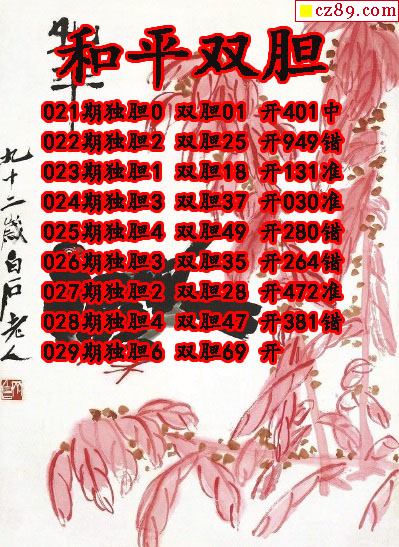 cz89.com
和平双胆
021期独胆0 双胆01 开401中
022期独胆2 双胆25 开949错
023期独胆1 双胆18 开131准
024期独胆3 双胆37 开030准
025期独胆4 双胆49 开280错
026期独胆3 双胆35 开264错
027期独胆2 双胆28 开472准
028期独胆4 双胆47 开381错
029期独胆6 双胆69 开
九十二岁白石老人